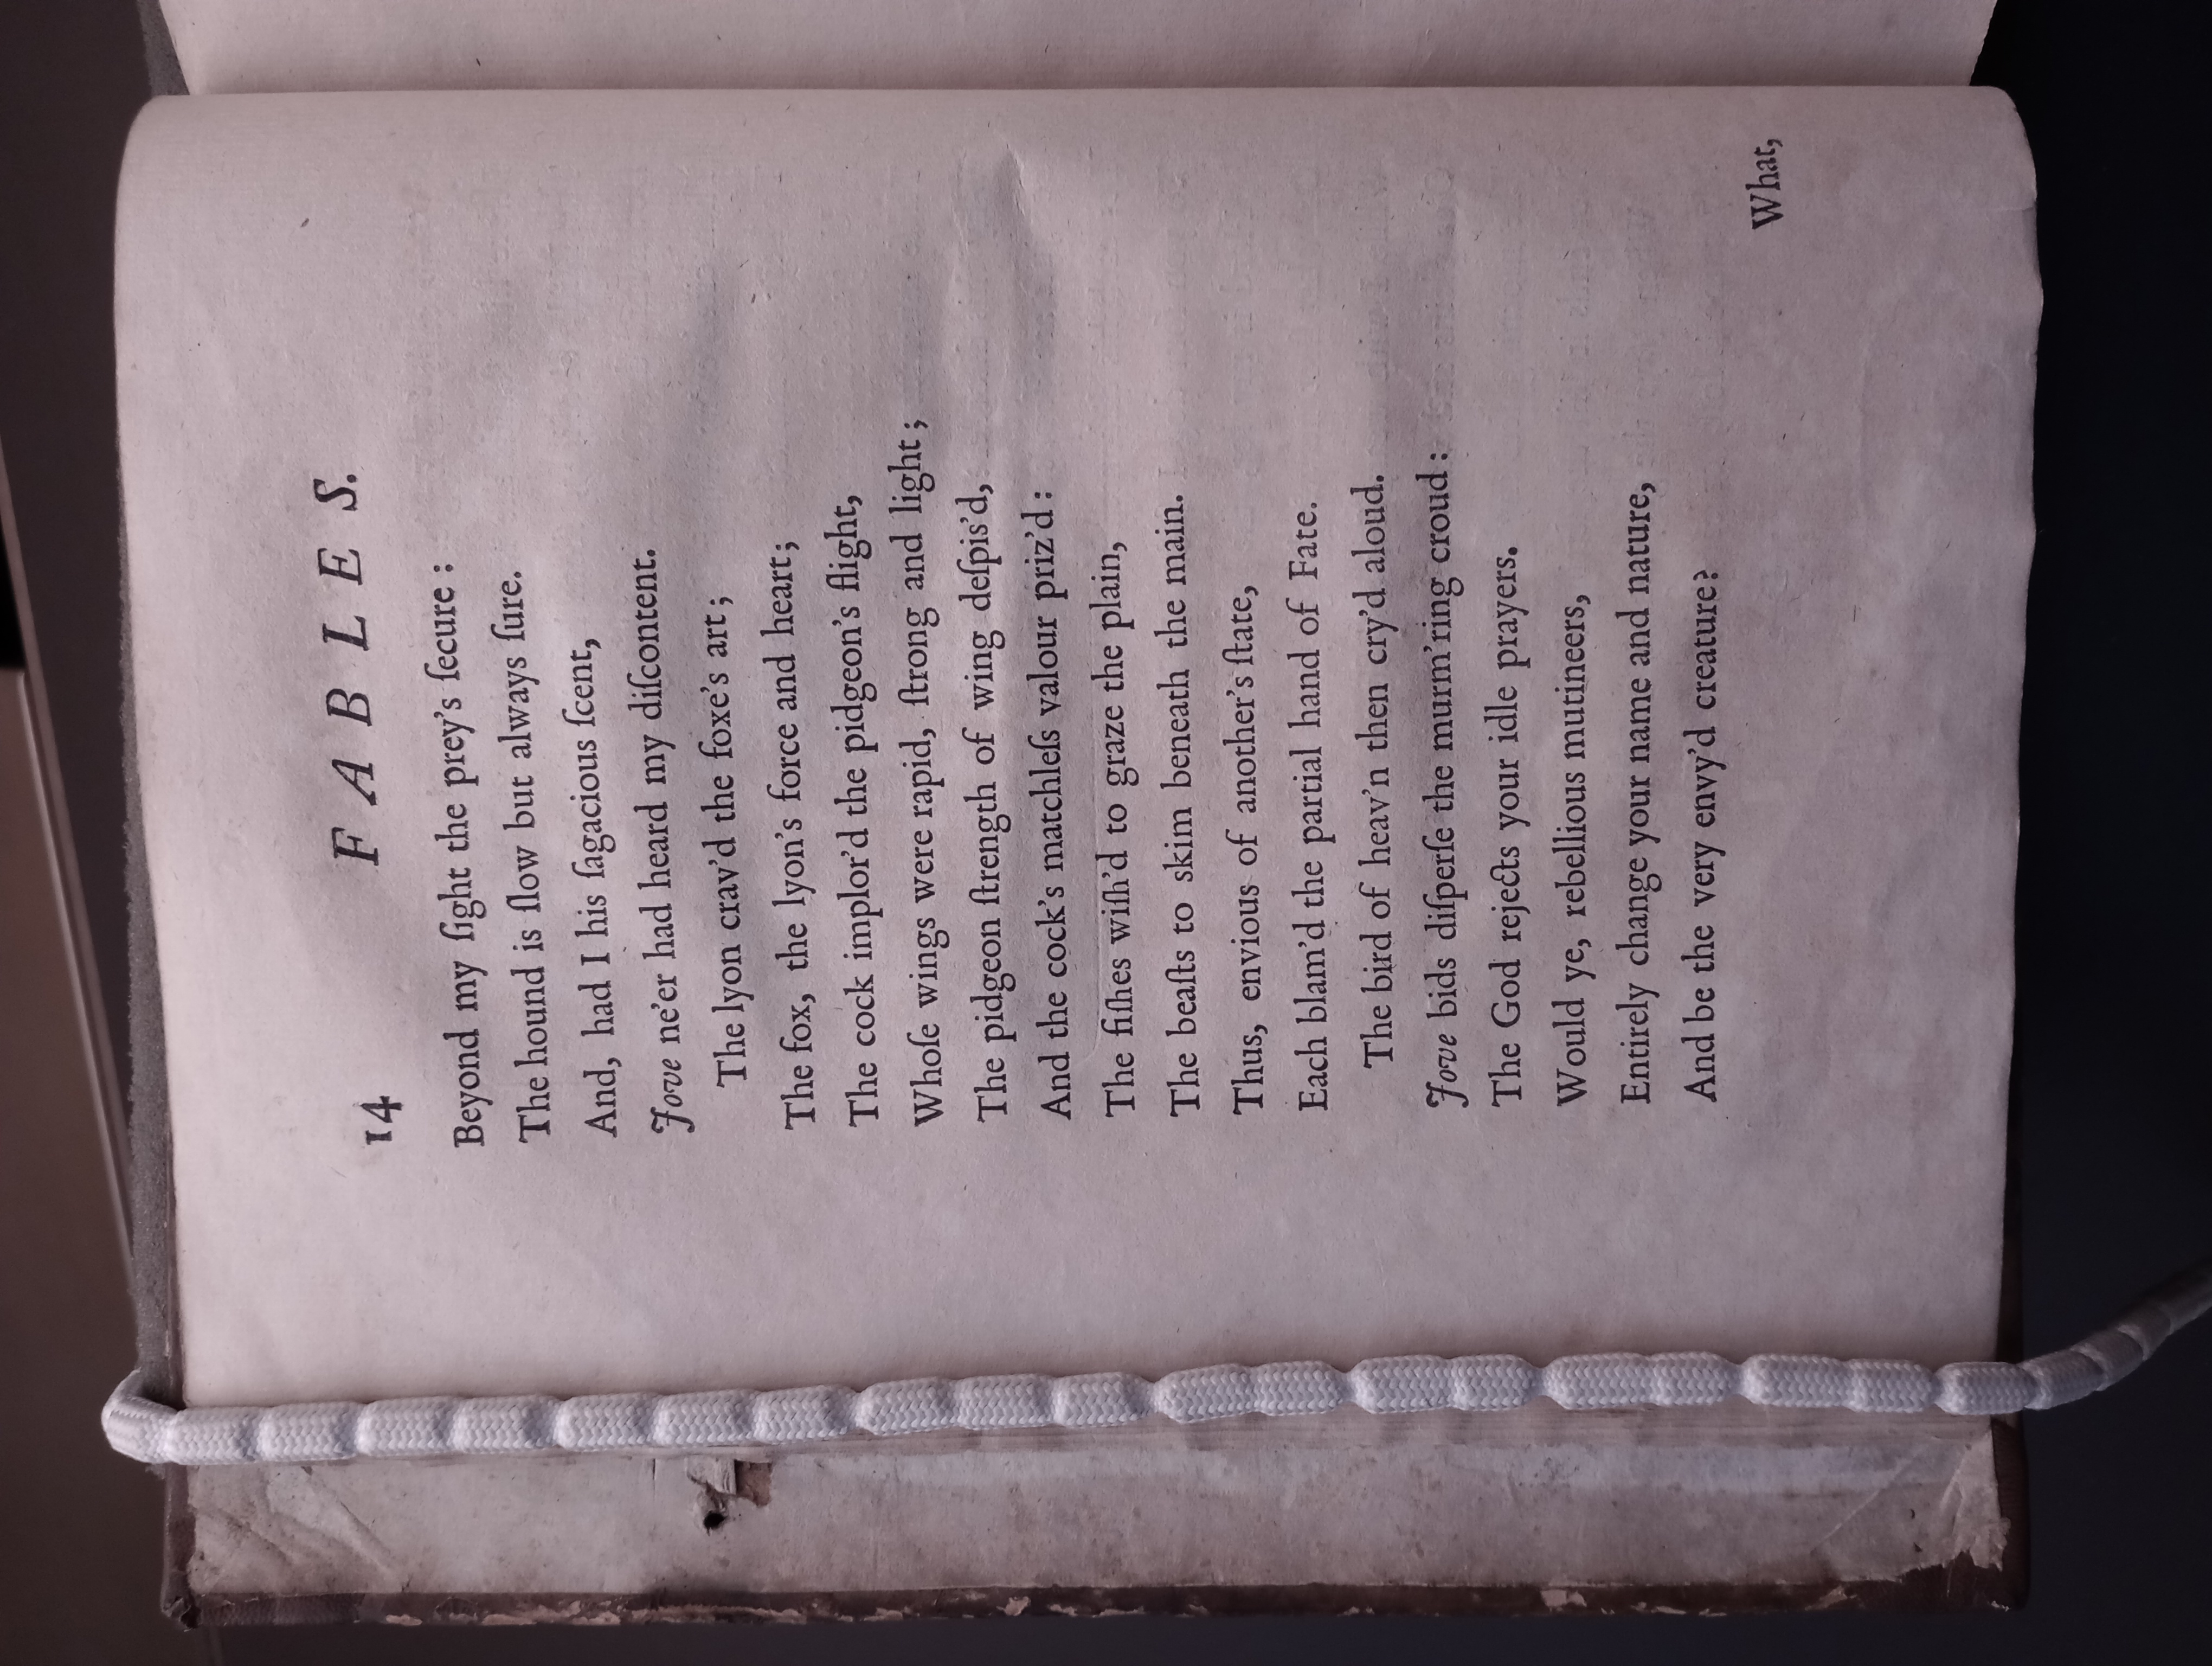 14 F A B L E S.
Beyond my ſight the prey's ſecure :
The hound is ſlow but always ſure.
And, had I his ſagacious ſcent,
Jove ne'er had heard my diſcontent.
The lyon crav'd the foxe's art ;
The fox, the lyon's force and heart;
The cock implor'd the pidgeon's flight,
Whoſe wings were rapid, ſtrong and light ;
The pidgeon ſtrength of wing deſpis'd,
And the cock's matchleſs valour priz'd :
The fiſhes wiſh'd to graze the plain,
The beaſts to skim beneath the main.
Thus, envious of another's ſtate,
Each blam'd the partial hand of Fate.
The bird of heav'n then cry'd aloud.
Jove bids diſperſe the murm'ring croud :
The God rejects your idle prayers.
Would ye, rebellious mutineers,
Entirely change your name and nature,
And be the very envy'd creature?
What,